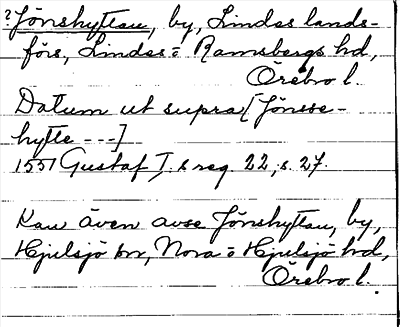 ? Jönshyttan, by, Lindes lands-
förs, Lindes o Ramsbergs hd,
Örebro l.
Datum ut supra [Jönsse-
hytte ---]
1551 Gustaf I:s reg 22, s. 27.
Kan även avse Jönshyttan, by,
Hjulsjö sn, Nora o Hjulsjö hd,
Örebro l.